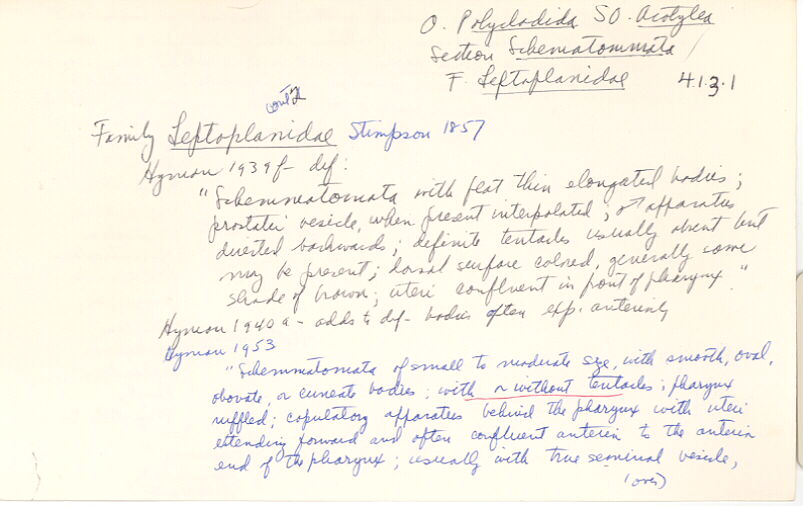 O. Polycladida SO. Acotylea
Section Schematommata /
F. Leptoplanidae 41.3.1
cont'd
Family Leptoplanidae Stimpson 1857
Hyman 1939f - def:
"Schemmatomata with flat thin elongated bodies;
prostatic vesicle, when present interpolated; ♂ apparatus
directed backwards; definite tentacles usually absent but
may be present; dorsal surface colored, generally some
shade of brown; uteri confluent in front of pharynx."
Hyman 1940a - adds to def - bodies often exp. anteriorly
Hyman 1953
"Schemmatomata of small to moderate size, with smooth, oval,
obovate, or cuneate bodies; with or without tentacles; pharynx
ruffled; copulatory apparatus behind the pharynx with uteri
extending forward and often confluent anterior to the anterior
end of the pharynx; usually with true seminal vesicle,
(over)